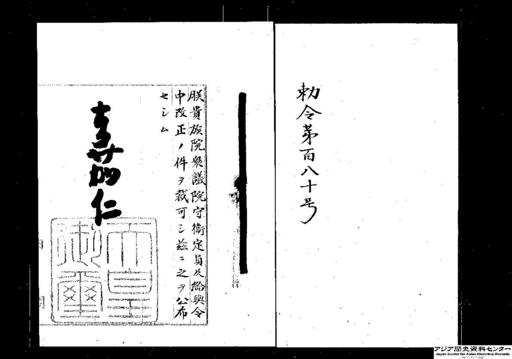 勅令第百八十号
朕貴族院衆議院守衛定員及給与令
中改正ノ件ヲ裁可シ茲ニ之ヲ公布
セシム
嘉仁
天皇
御璽
アジア歴史資料センター
Japan Center for Asian Historical Records